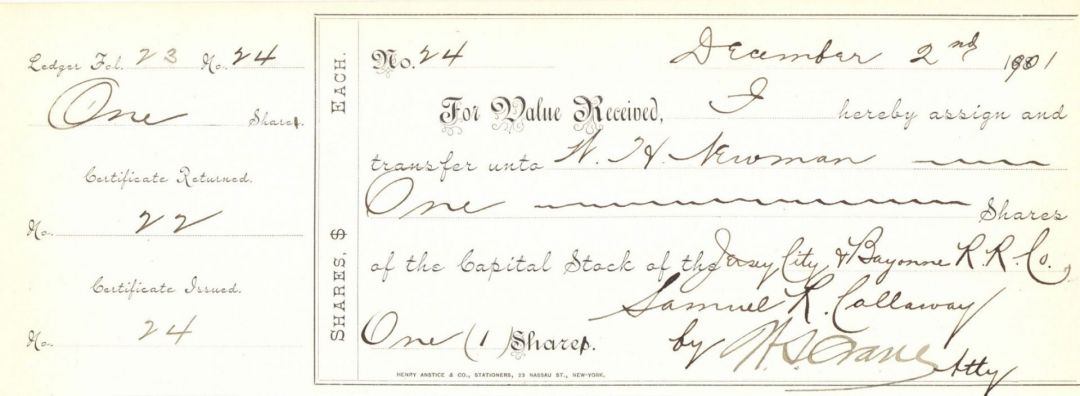 Ledger Fol. 23 No. 24
One Share.
Certificate Returned.
No. 22
Certificate Issued.
No. 24
SHARES, $ EACH.
No. 24 December 2nd 1901
For Value Received, I hereby assign and
transfer unto W. H Newman
One Shares
of the Capital Stock of the Jersey City & Bayonne R. R. Co.,
Samuel R. Callaway
One (1) Share.
by Crane Atty
HENRY ANSTICE & CO., STATIONERS, 23 NASSAU ST., NEW-YORK.